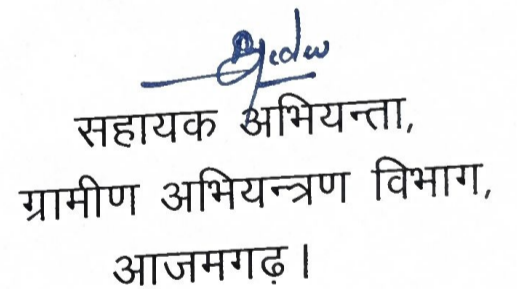 सहायक अभियन्ता,
ग्रामीण अभियन्त्रण विभाग,
आजमगढ़।